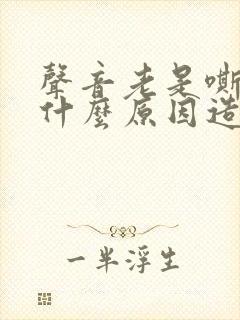 聲音老是嘶
什麼原因造
一半浮生